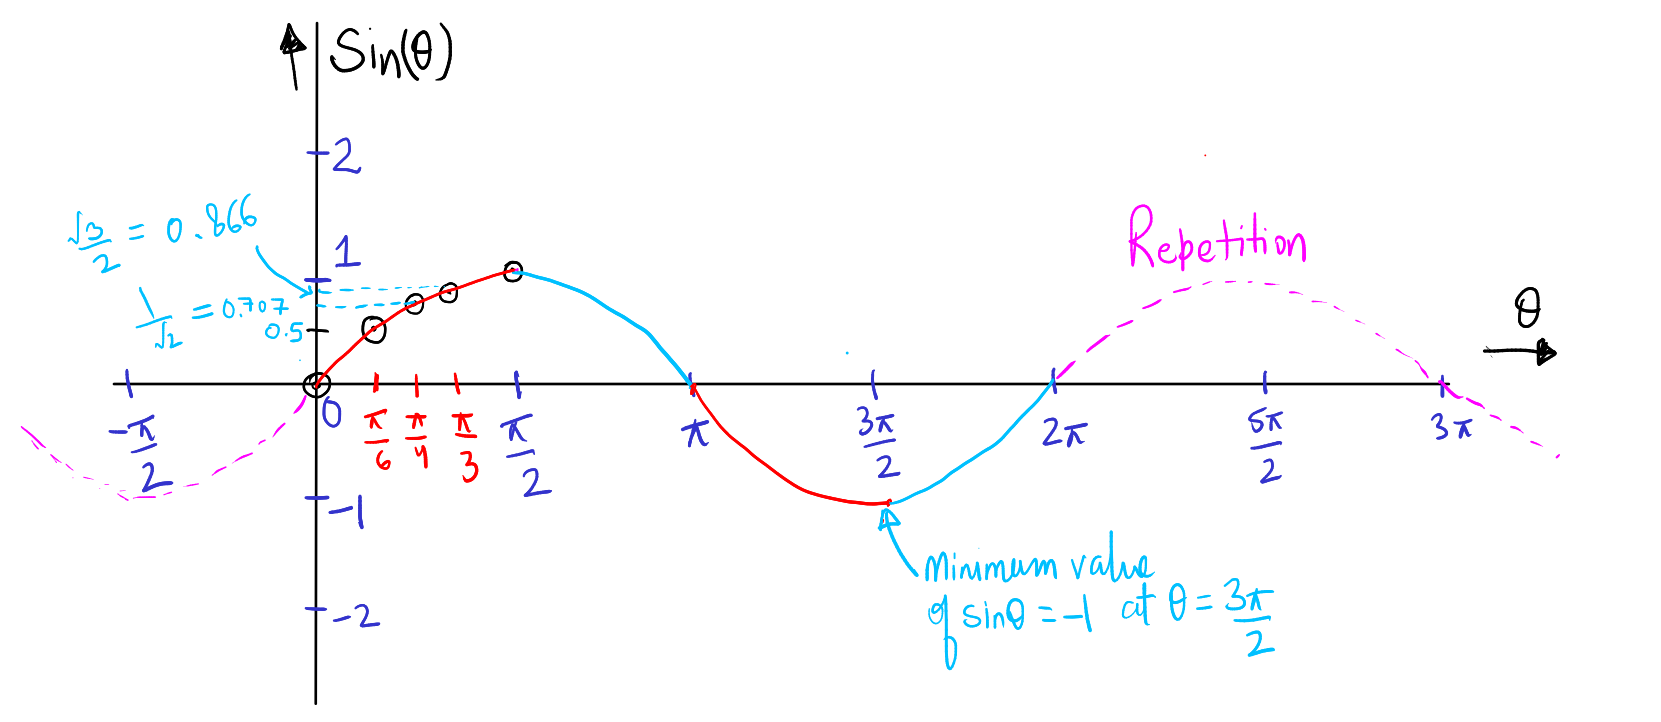 Sin(θ)
2
√3/2 = 0.866
1
1/√2 = 0.707
0.5
Repetition
θ
-π/2
0
π/6
π/4
π/3
π/2
π
3π/2
2π
5π/2
3π
-1
-2
Minimum value
of sinθ = -1 at θ = 3π/2